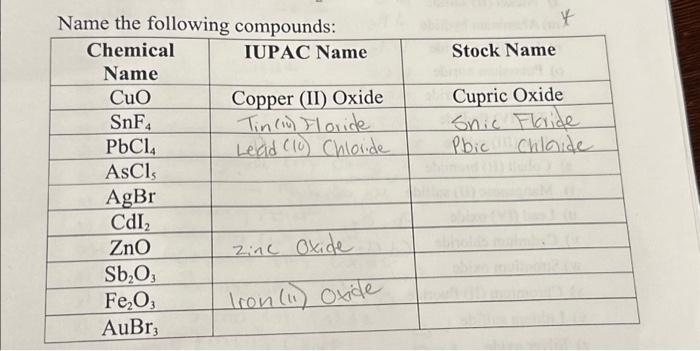 Name the following compounds:
Chemical Name IUPAC Name Stock Name
CuO Copper (II) Oxide Cupric Oxide
SnF₄ Tin(iv) Floride Snic Floride
PbCl₄ Lead (iv) Chloride Pbic Chloride
AsCl₅
AgBr
CdI₂
ZnO zinc Oxide
Sb₂O₃
Fe₂O₃ Iron(ii) Oxide
AuBr₃